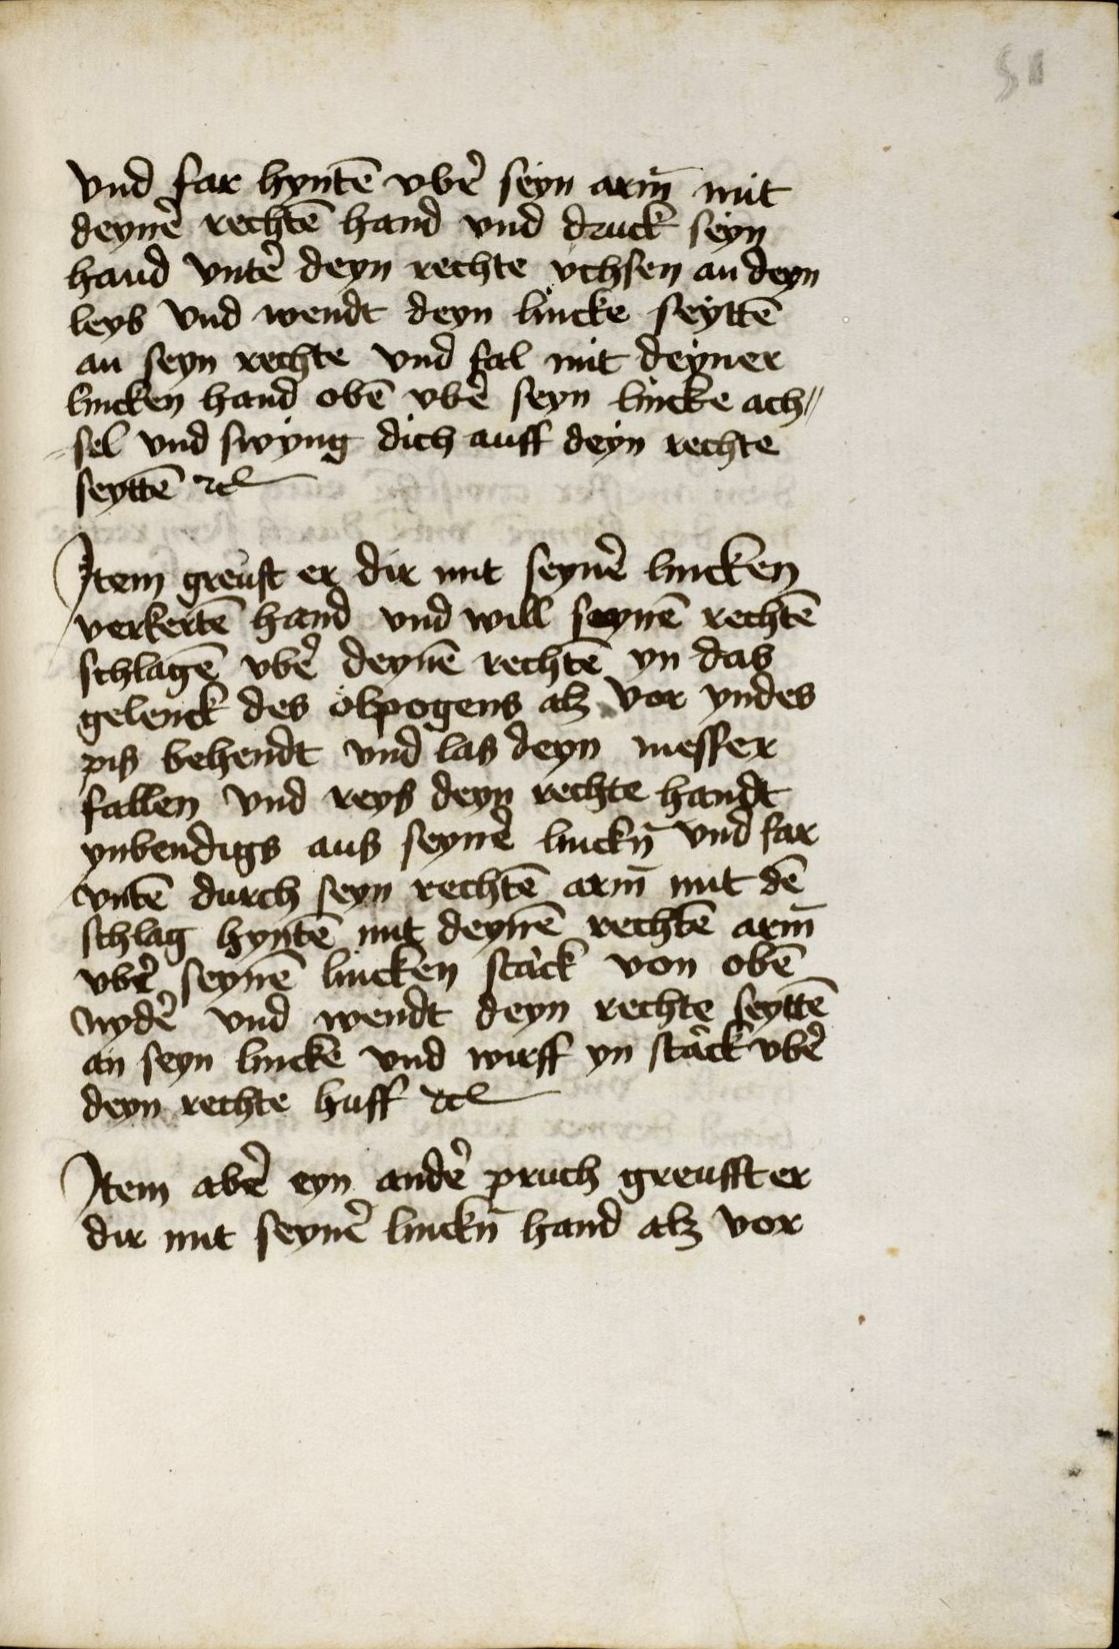 51
vnd far hyntē vber̄ seyn arm̄ mit
deyner̄ rechtē hand vnd druck seyn
hand vnter̄ deyn rechte vchsen an deyn
leyb vnd wendt deyn lincke seyttē
an seyn rechte vnd fal mit deyner
lincken hand obē vber̄ seyn lincke ach〃
sel vnd swyng dich auff deyn rechte
seyttē ⁊cͭ
Item greüft er dir mit seyner̄ lincken
verkertē hand vnd will seynē rechtē
schlagē vber̄ deynē rechtē yn das
gelenck des ölpogens alz vor yndes
pis behendt vnd las deyn messer
fallen vnd reyß deyn rechte handt
ynbendigs aus seyner̄ linckn̄ vnd far
vntē durch seyn rechtē arm̄ mit dē
schlag hyntē mit deynē rechtē arm̄
vber̄ seynē lincken starck von obē
nyder̄ vnd wendt deyn rechte seyttē
an seyn lincke vnd wirff yn starck vber̄
deyn rechte huff ⁊cͭ
Item aber̄ eyn ander̄ pruch greufft er
dir mit seyner̄ linckn̄ hand alz vor